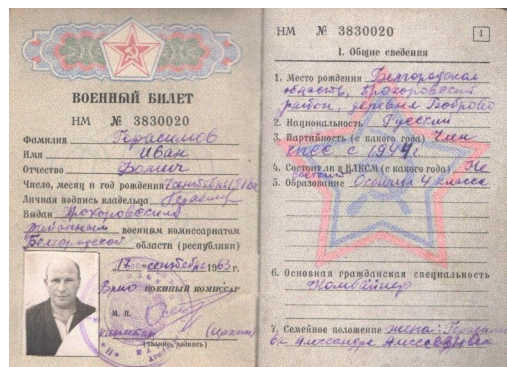 ВОЕННЫЙ БИЛЕТ
НМ № 3830020
Фамилия Герасимов
Имя Иван
Отчество Фомич
Число, месяц и год рождения 7 сентября
Личная подпись владельца
Выдан Прохоровским
районным военным комиссариатом
Белгородской области (республики)
"17" сентября 1963 г.
Врио ВОЕННЫЙ КОМИССАР
М. П.
капитан
(звание, подпись)
НМ № 3830020
1
I. Общие сведения
1. Место рождения Белгородская
область, Прохоровский
район, деревня Боброво
2. Национальность Русский
3. Партийность (с какого года) Член
КПСС с 1944 г.
4. Состоит ли в ВЛКСМ (с какого года) Не
состоит
5. Образование Окончил 4 класса
6. Основная гражданская специальность
Комбайнер
7. Семейное положение жена: Герасимо
ва Александра Алексеевна